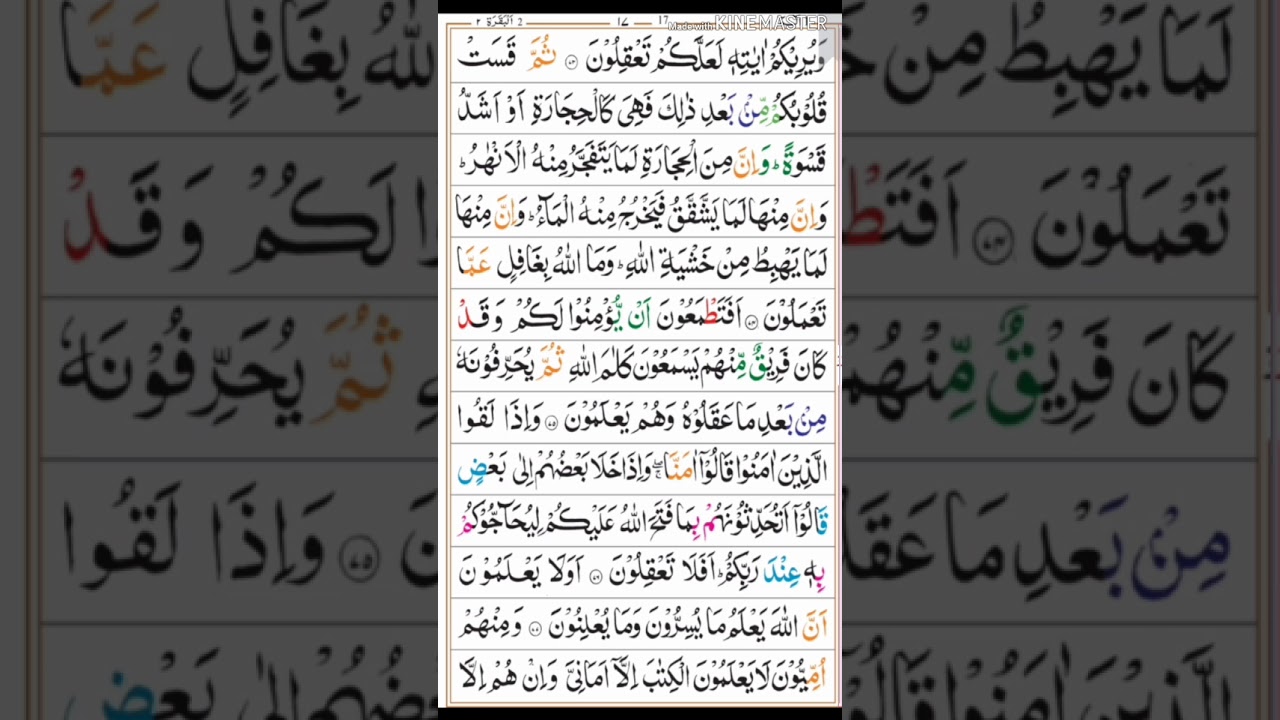 ٢ اَلْبَقَرَة 2 ١٧ 17
Made with KINEMASTER
وَيُرِيْكُمْ اٰيٰتِهٖ لَعَلَّكُمْ تَعْقِلُوْنَ ﴿٧٣﴾ ثُمَّ قَسَتْ
قُلُوْبُكُمْ مِّنْۢ بَعْدِ ذٰلِكَ فَهِيَ كَالْحِجَارَةِ اَوْ اَشَدُّ
قَسْوَةً ؕ وَاِنَّ مِنَ الْحِجَارَةِ لَمَا يَتَفَجَّرُ مِنْهُ الْاَنْهٰرُ ؕ
وَاِنَّ مِنْهَا لَمَا يَشَّقَّقُ فَيَخْرُجُ مِنْهُ الْمَآءُ ؕ وَاِنَّ مِنْهَا
لَمَا يَهْبِطُ مِنْ خَشْيَةِ اللّٰهِ ؕ وَمَا اللّٰهُ بِغَافِلٍ عَمَّا
تَعْمَلُوْنَ ﴿٧٤﴾ اَفَتَطْمَعُوْنَ اَنْ يُّؤْمِنُوْا لَكُمْ وَقَدْ
كَانَ فَرِيْقٌ مِّنْهُمْ يَسْمَعُوْنَ كَلٰمَ اللّٰهِ ثُمَّ يُحَرِّفُوْنَهٗ
مِنْۢ بَعْدِ مَا عَقَلُوْهُ وَهُمْ يَعْلَمُوْنَ ﴿٧٥﴾ وَاِذَا لَقُوا
الَّذِيْنَ اٰمَنُوْا قَالُوْٓا اٰمَنَّا ۖۚ وَاِذَا خَلَا بَعْضُهُمْ اِلٰى بَعْضٍ
قَالُوْٓا اَتُحَدِّثُوْنَهُمْ بِمَا فَتَحَ اللّٰهُ عَلَيْكُمْ لِيُحَآجُّوْكُمْ
بِهٖ عِنْدَ رَبِّكُمْ ؕ اَفَلَا تَعْقِلُوْنَ ﴿٧٦﴾ اَوَلَا يَعْلَمُوْنَ
اَنَّ اللّٰهَ يَعْلَمُ مَا يُسِرُّوْنَ وَمَا يُعْلِنُوْنَ ﴿٧٧﴾ وَمِنْهُمْ
اُمِّيُّوْنَ لَا يَعْلَمُوْنَ الْكِتٰبَ اِلَّآ اَمَانِيَّ وَاِنْ هُمْ اِلَّا